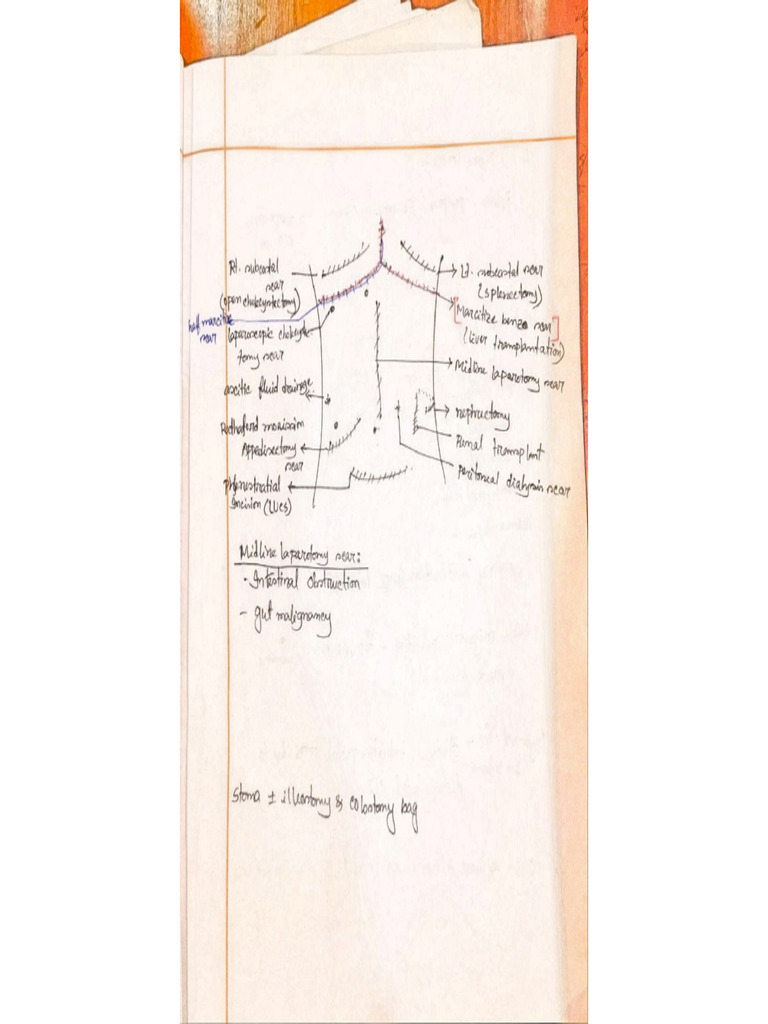 Rt. subcostal
scar
(open cholecystectomy)
half marcitize
scar
laparoscopic cholecyste
tomy scar
ascitic fluid drainge
Rudhaford morission
Appedisectomy
scar
phfanustratial
incision (LUCS)
Lt. subcostal scar
(splenectomy)
[Marcitize benze scar]
(liver transplantation)
Midline laparotomy scar
nephrectomy
Renal transplant
peritoneal dialysis scar
Midline laparotomy scar:
- Intestinal obstruction
- gut malignancy
Stoma ± illeostomy & colostomy bag